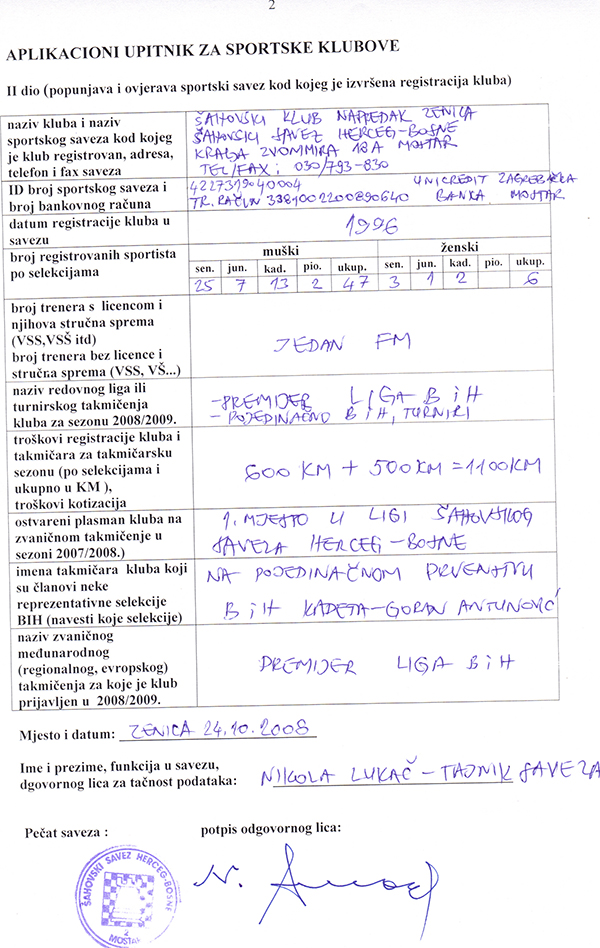 2
APLIKACIONI UPITNIK ZA SPORTSKE KLUBOVE
II dio (popunjava i ovjerava sportski savez kod kojeg je izvršena registracija kluba)
naziv kluba i naziv
sportskog saveza kod kojeg
je klub registrovan, adresa,
telefon i fax saveza
ŠAHOVSKI KLUB NAPREDAK ZENICA
ŠAHOVSKI SAVEZ HERCEG-BOSNE
KRALJA ZVONIMIRA 18A MOSTAR
TEL/FAX: 030/793-830
ID broj sportskog saveza i
broj bankovnog računa
4227319040004 UNICREDIT ZAGREBAČKA
TR. RAČUN 3381002200890640 BANKA MOSTAR
datum registracije kluba u
savezu
1996
broj registrovanih sportista
po selekcijama
muški ženski
sen. jun. kad. pio. ukup. sen. jun. kad. pio. ukup.
25 7 13 2 47 3 1 2 6
broj trenera s licencom i
njihova stručna sprema
(VSS,VSŠ itd)
broj trenera bez licence i
stručna sprema (VSS, VŠ...)
JEDAN FM
naziv redovnog liga ili
turnirskog takmičenja
kluba za sezonu 2008/2009.
-PREMIJER LIGA BiH
- POJEDINAČNO BiH, TURNIRI
troškovi registracije kluba i
takmičara za takmičarsku
sezonu (po selekcijama i
ukupno u KM ),
troškovi kotizacija
600 KM + 500 KM = 1100 KM
ostvareni plasman kluba na
zvaničnom takmičenje u
sezoni 2007/2008.)
1. MJESTO U LIGI ŠAHOVSKOG
SAVEZA HERCEG-BOSNE
imena takmičara kluba koji
su članovi neke
reprezentativne selekcije
BIH (navesti koje selekcije)
NA POJEDINAČNOM PRVENSTVU
BiH KADETA-GORAN ANTUNOVIĆ
naziv zvaničnog
međunarodnog
(regionalnog, evropskog)
takmičenja za koje je klub
prijavljen u 2008/2009.
PREMIJER LIGA BiH
Mjesto i datum: ZENICA 24.10.2008
Ime i prezime, funkcija u savezu,
dgovornog lica za tačnost podataka: NIKOLA LUKAČ - TAJNIK SAVEZA
Pečat saveza : potpis odgovornog lica:
ŠAHOVSKI SAVEZ HERCEG-BOSNE
MOSTAR